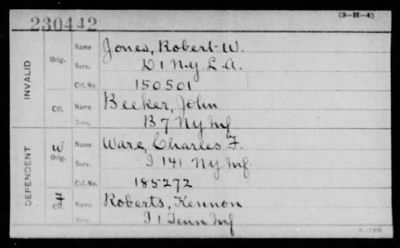 230442
(3-H-4)
INVALID
Orig. Name Jones, Robert W.
Serv. D 1 N.Y. L. A.
Ctf. No. 150501
Ctf. Name Beeker, John
Serv. B 7 Ny Inf
DEPENDENT
W Orig. Name Ware, Charles F.
Serv. I 141 Ny Inf
Ctf. No. 185272
Ctf. Name Roberts, Kennon
Serv. I 1 Tenn Inf